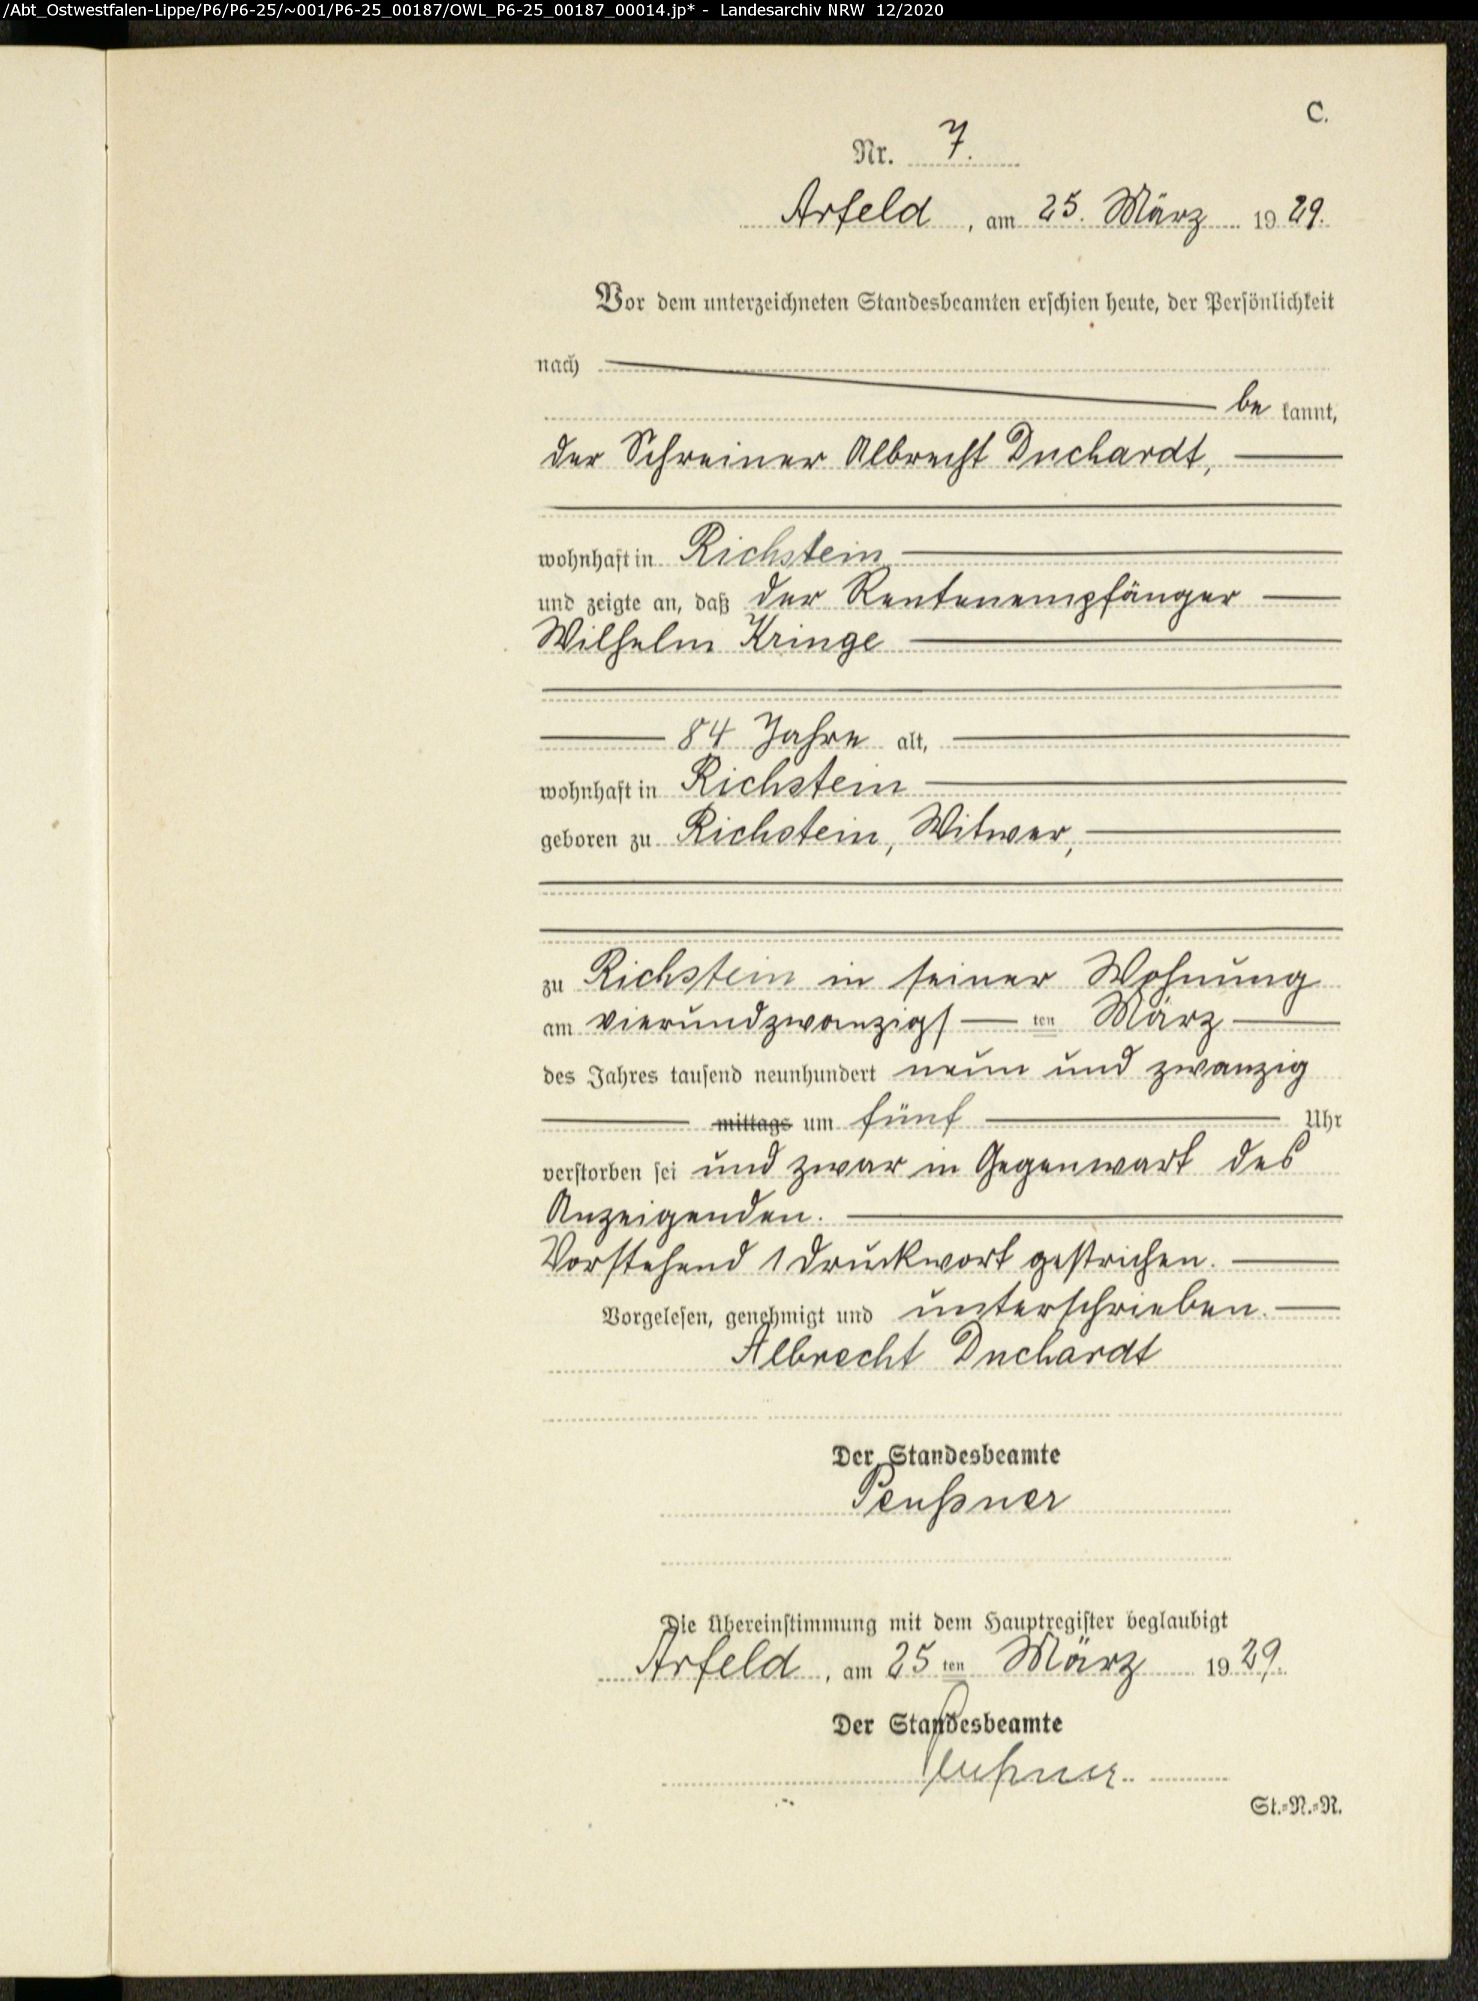 /Abt_Ostwestfalen-Lippe/P6/P6-25/~001/P6-25_00187/OWL_P6-25_00187_00014.jp* - Landesarchiv NRW 12/2020
C.
Nr. 7.
Arfeld, am 25. März 1929.
Vor dem unterzeichneten Standesbeamten erschien heute, der Persönlichkeit
nach
bekannt,
der Schreiner Albrecht Duchardt,
wohnhaft in Richstein
und zeigte an, daß der Rentenempfänger
Wilhelm Kringe
84 Jahre alt,
wohnhaft in Richstein
geboren zu Richstein, Witwer,
zu Richstein in seiner Wohnung
am vierundzwanzigsten März
des Jahres tausend neunhundert neun und zwanzig
mittags um fünf Uhr
verstorben sei und zwar in Gegenwart des
Anzeigenden.
Vorstehend 1 Druckwort gestrichen.
Vorgelesen, genehmigt und unterschrieben.
Albrecht Duchardt
Der Standesbeamte
Peußner
Die Übereinstimmung mit dem Hauptregister beglaubigt
Arfeld, am 25ten März 1929.
Der Standesbeamte
Peußner.
St.=N.=N.